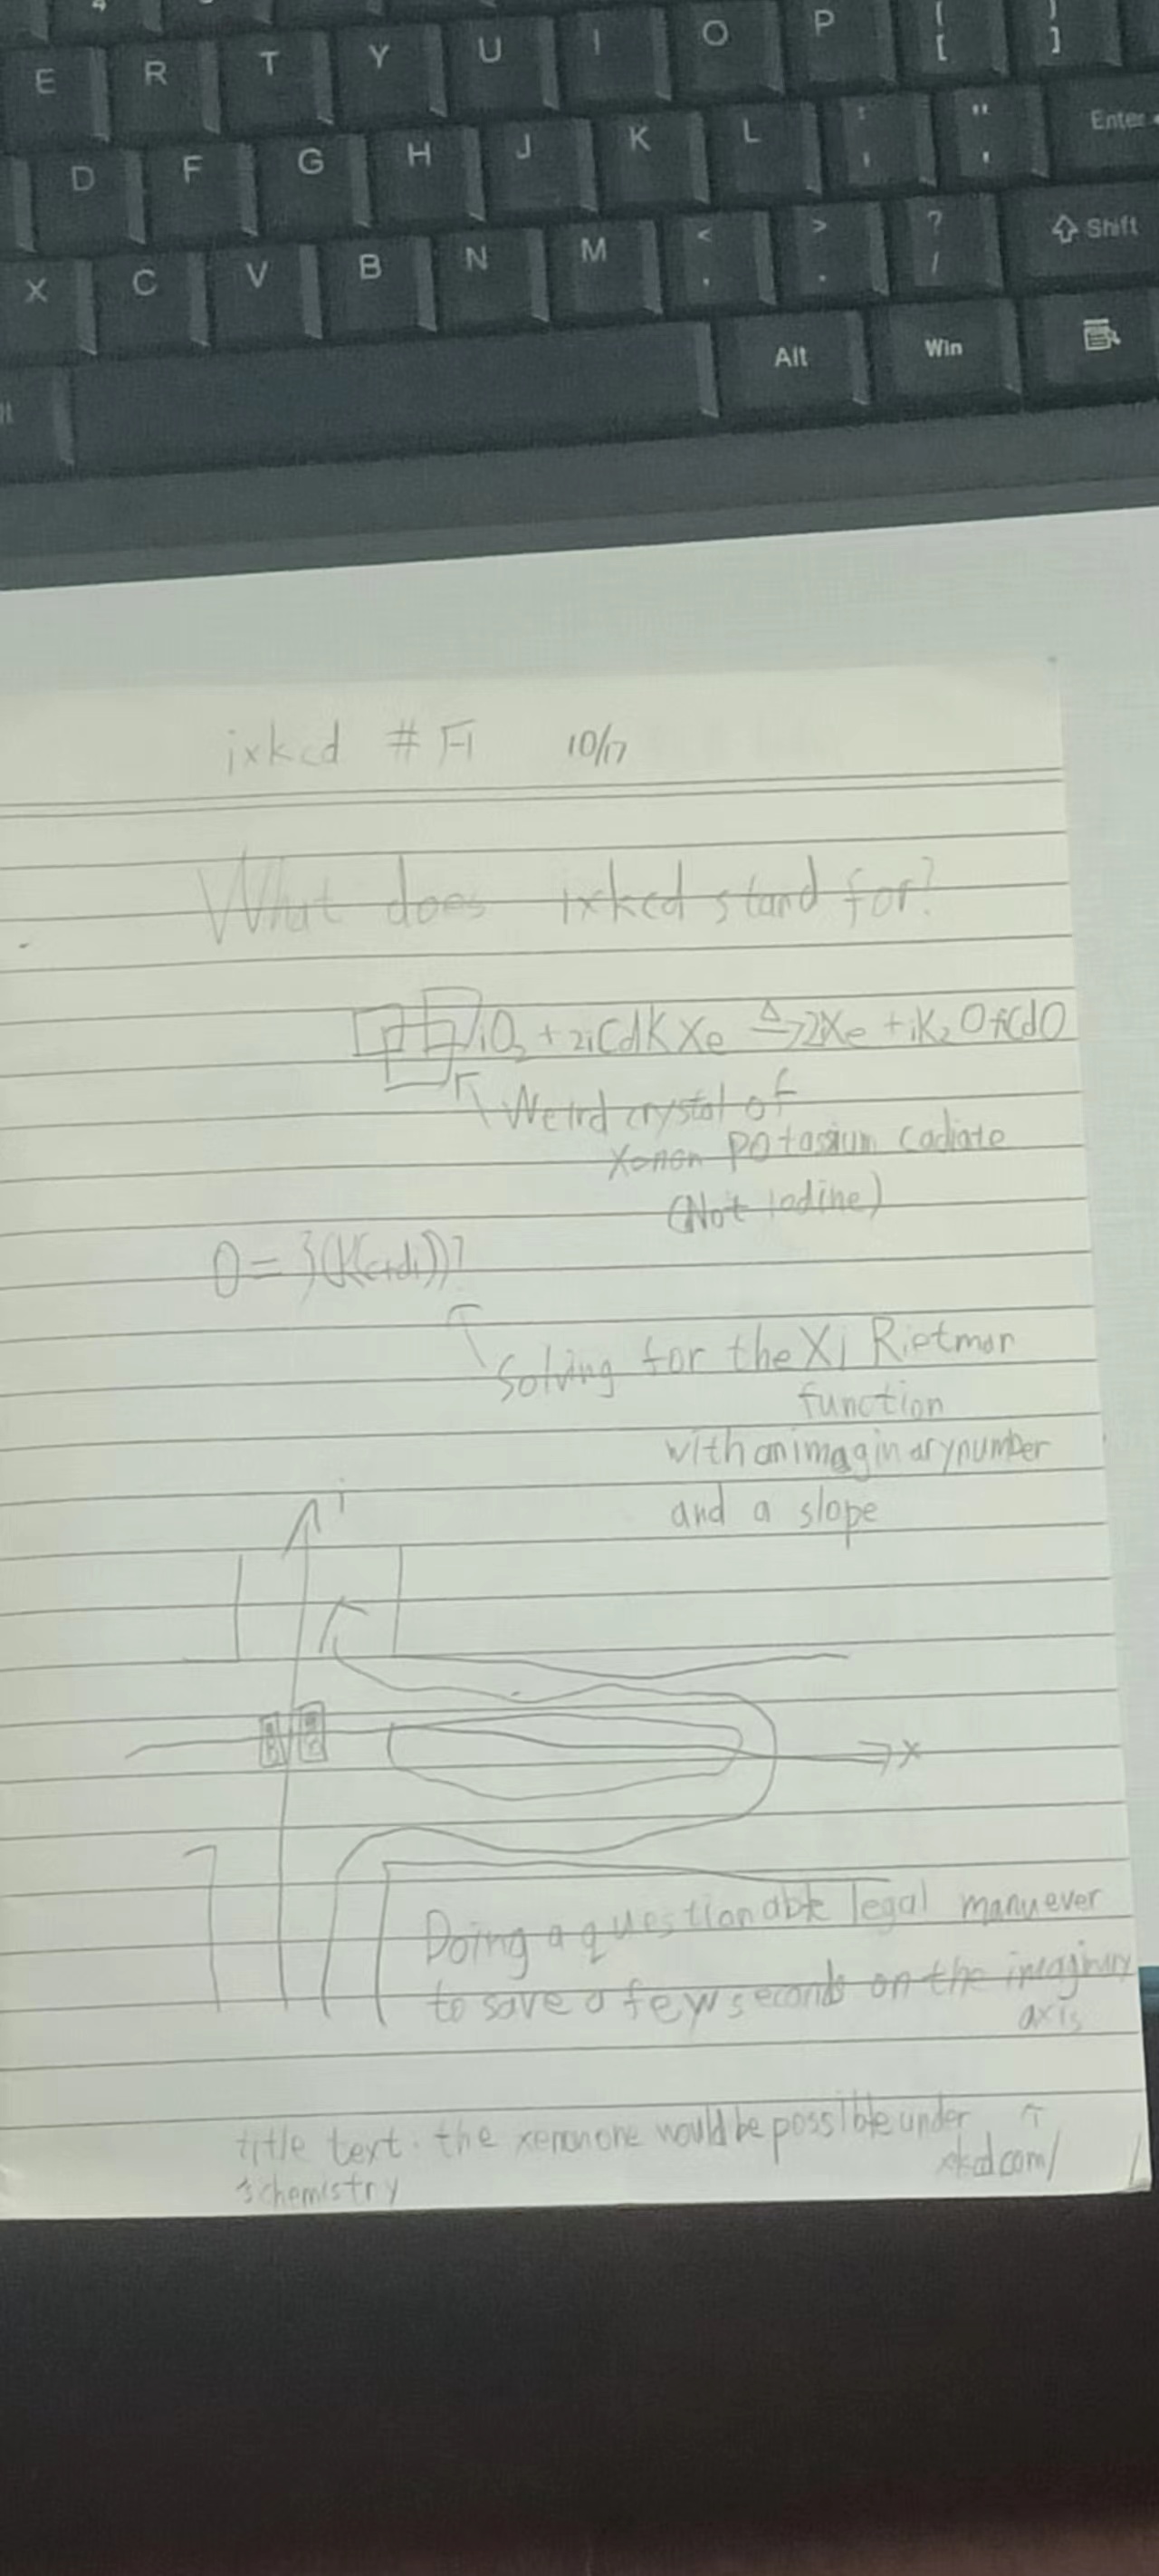 E R T Y U I O P { [ } ]
D F G H J K L : ; " ' Enter
X C V B N M < , > . ? / Shift
Alt Win
ixkcd # 10/17
What does ixkcd stand for?
iO₂ + 2iCdKXe ≜ 2iXe + iK₂O + iCdO
Weird crystal of
Xenon Potassium Cadiate
(Not Iodine)
0 = ξ(K(c+di))?
Solving for the Xi Rietman
function
with an imaginary number
and a slope
i
x
Doing a questionable legal manuever
to save a few seconds on the imaginary
axis
title text: the xenon one would be possible under
chemistry
xkcd.com/